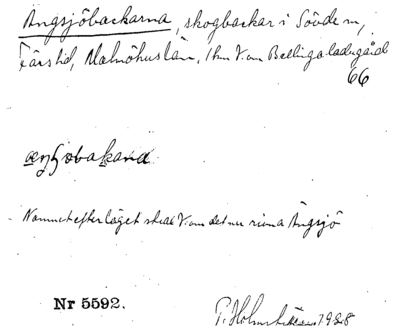 Ängsjöbackarna, skogbackar i Sövde sn,
Färs hd, Malmöhus län, 1 km V. om Bellinga ladugård
66
Namnet efter läget strax V. om det nu
Ängsjö
Nr 5592.
1928